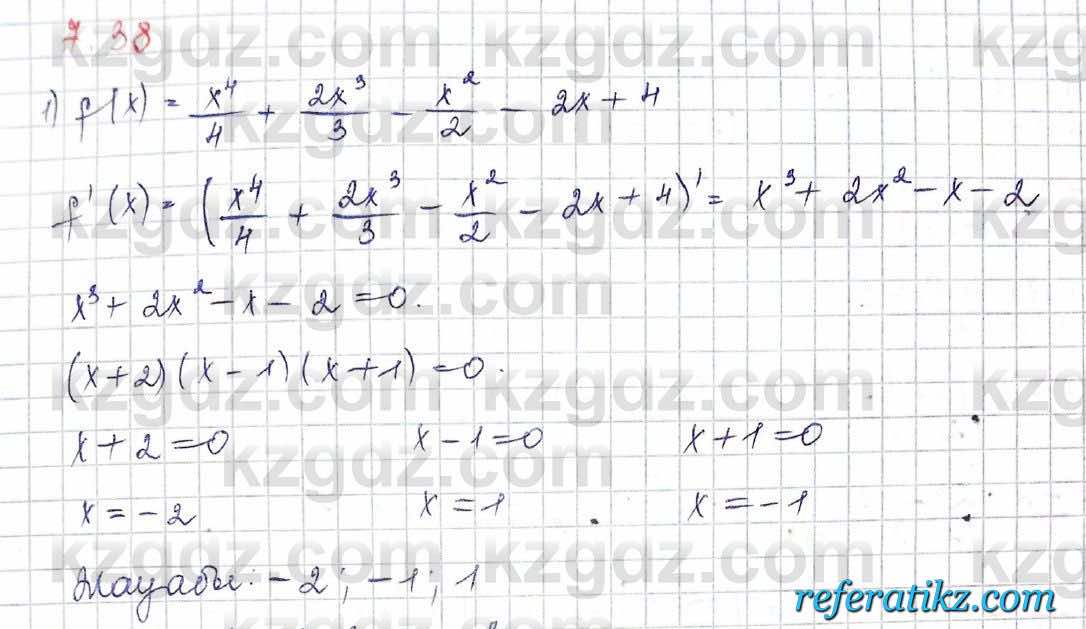 7.38
1) f(x) = x⁴/4 + 2x³/3 - x²/2 - 2x + 4
f'(x) = (x⁴/4 + 2x³/3 - x²/2 - 2x + 4)' = x³ + 2x² - x - 2
x³ + 2x² - x - 2 = 0.
(x+2)(x-1)(x+1) = 0.
x + 2 = 0 x - 1 = 0 x + 1 = 0
x = -2 x = 1 x = -1
Жауабы: -2; -1; 1
kzgdz.com
referatikz.com